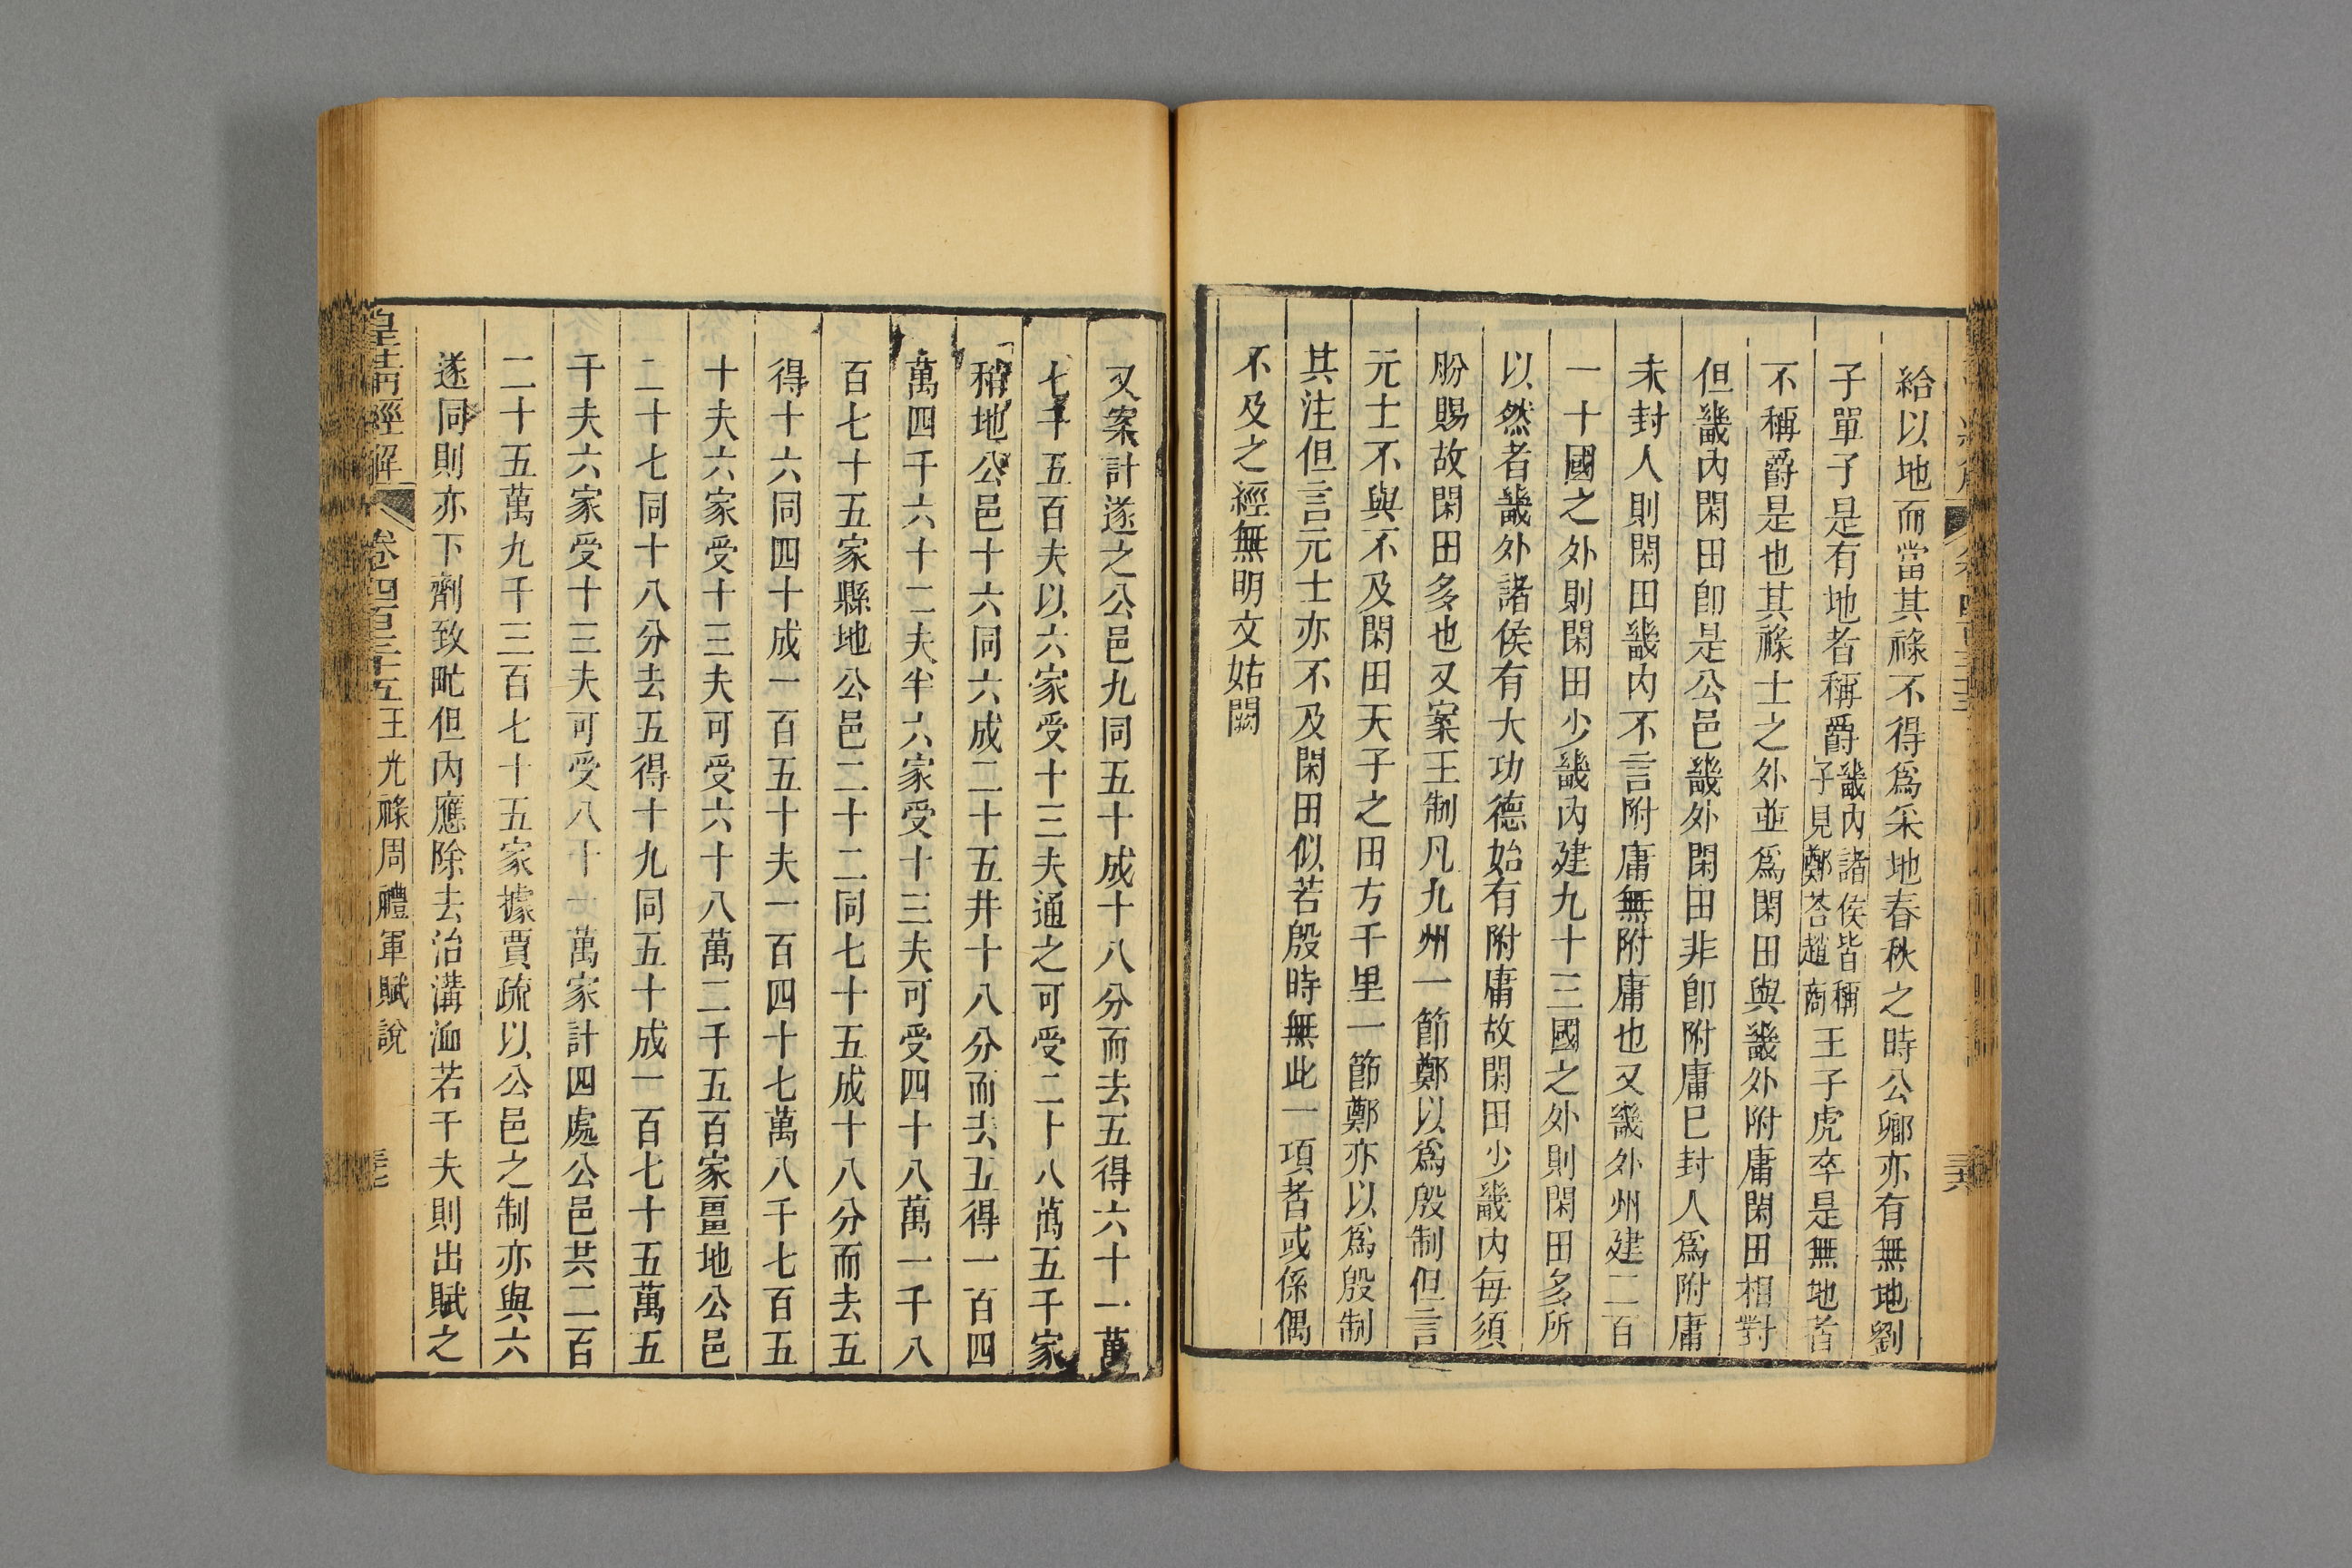 給以地而當其祿不得爲采地春秋之時公卿亦有無地劉
子單子是有地者稱爵畿內諸侯皆稱子見鄭荅趙商王子虎卒是無地者
不稱爵是也其祿士之外並爲閑田與畿外附庸閑田相對
但畿內閑田卽是公邑畿外閑田非卽附庸巳封人爲附庸
未封人則閑田畿內不言附庸無附庸也又畿外州建二百
一十國之外則閑田少畿內建九十三國之外則閑田多所
以然者畿外諸侯有大功德始有附庸故閑田少畿內每須
朌賜故閑田多也又案王制凡九州一節鄭以爲殷制但言
元士不與不及閑田天子之田方千里一節鄭亦以爲殷制
其注但言元士亦不及閑田似若殷時無此一項者或係偶
不及之經無明文姑闕
又案計遂之公邑九同五十成十八分而去五得六十一萬
七千五百夫以六家受十三夫通之可受二十八萬五千家
稍地公邑十六同六成二十五井十八分而去五得一百四
萬四千六十二夫半六家受十三夫可受四十八萬一千八
百七十五家縣地公邑二十二同七十五成十八分而去五
得十六同四十成一百五十夫一百四十七萬八千七百五
十夫六家受十三夫可受六十八萬二千五百家畺地公邑
二十七同十八分去五得十九同五十成一百七十五萬五
千夫六家受十三夫可受八十一萬家計四處公邑共二百
二十五萬九千三百七十五家據賈疏以公邑之制亦與六
遂同則亦下劑致甿但內應除去治溝洫若干夫則出賦之
皇清經解 卷四百三十五王光祿周禮軍賦說 三七